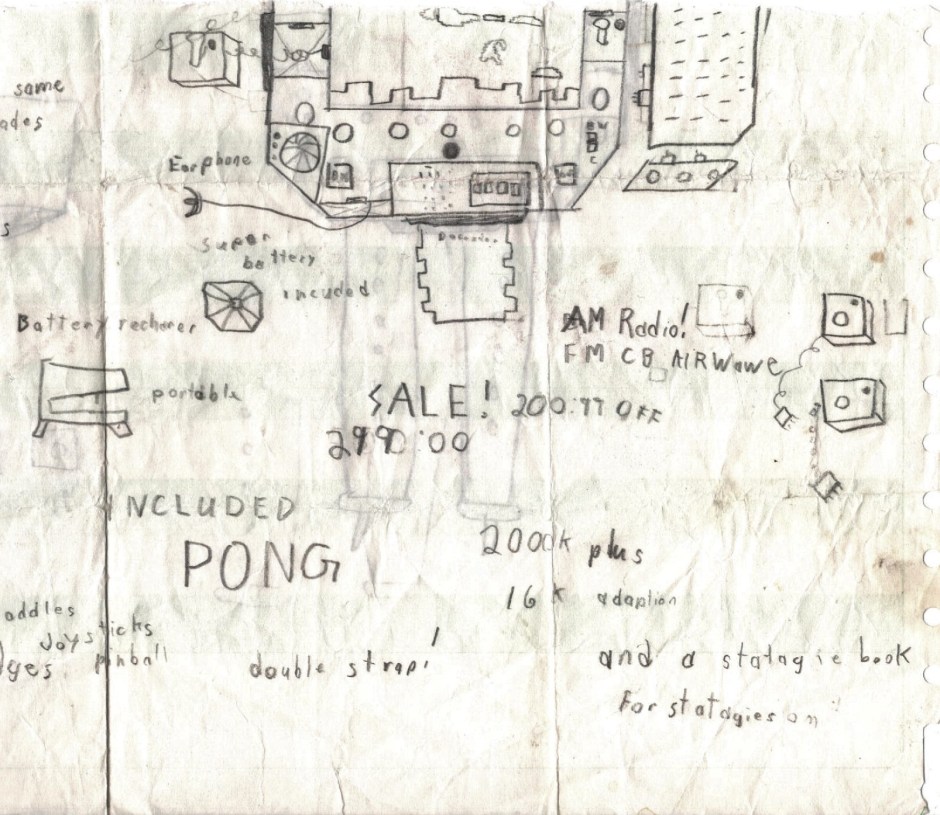 same
ades
B W
C
Earphone
ON
s
Super
battery
incuded
Battery recharer
AM Radio!
FM CB AIRWave
portable
SALE! 200:77 OFF
2990:00
INCLUDED
PONG
200k plus
16 K adaption
addles
Joysticks
ges pinball
double strap!
and a statagie book
for statagies on